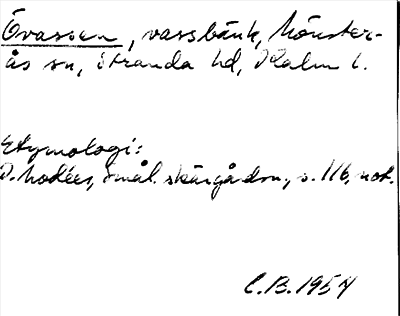 Övassen, vassbänk, Mönster-
ås sn, Stranda hd, Kalm l.
Etymologi:
D. Modéer, Smål. skärgårdsn., s. 116, not.
C.B. 1954